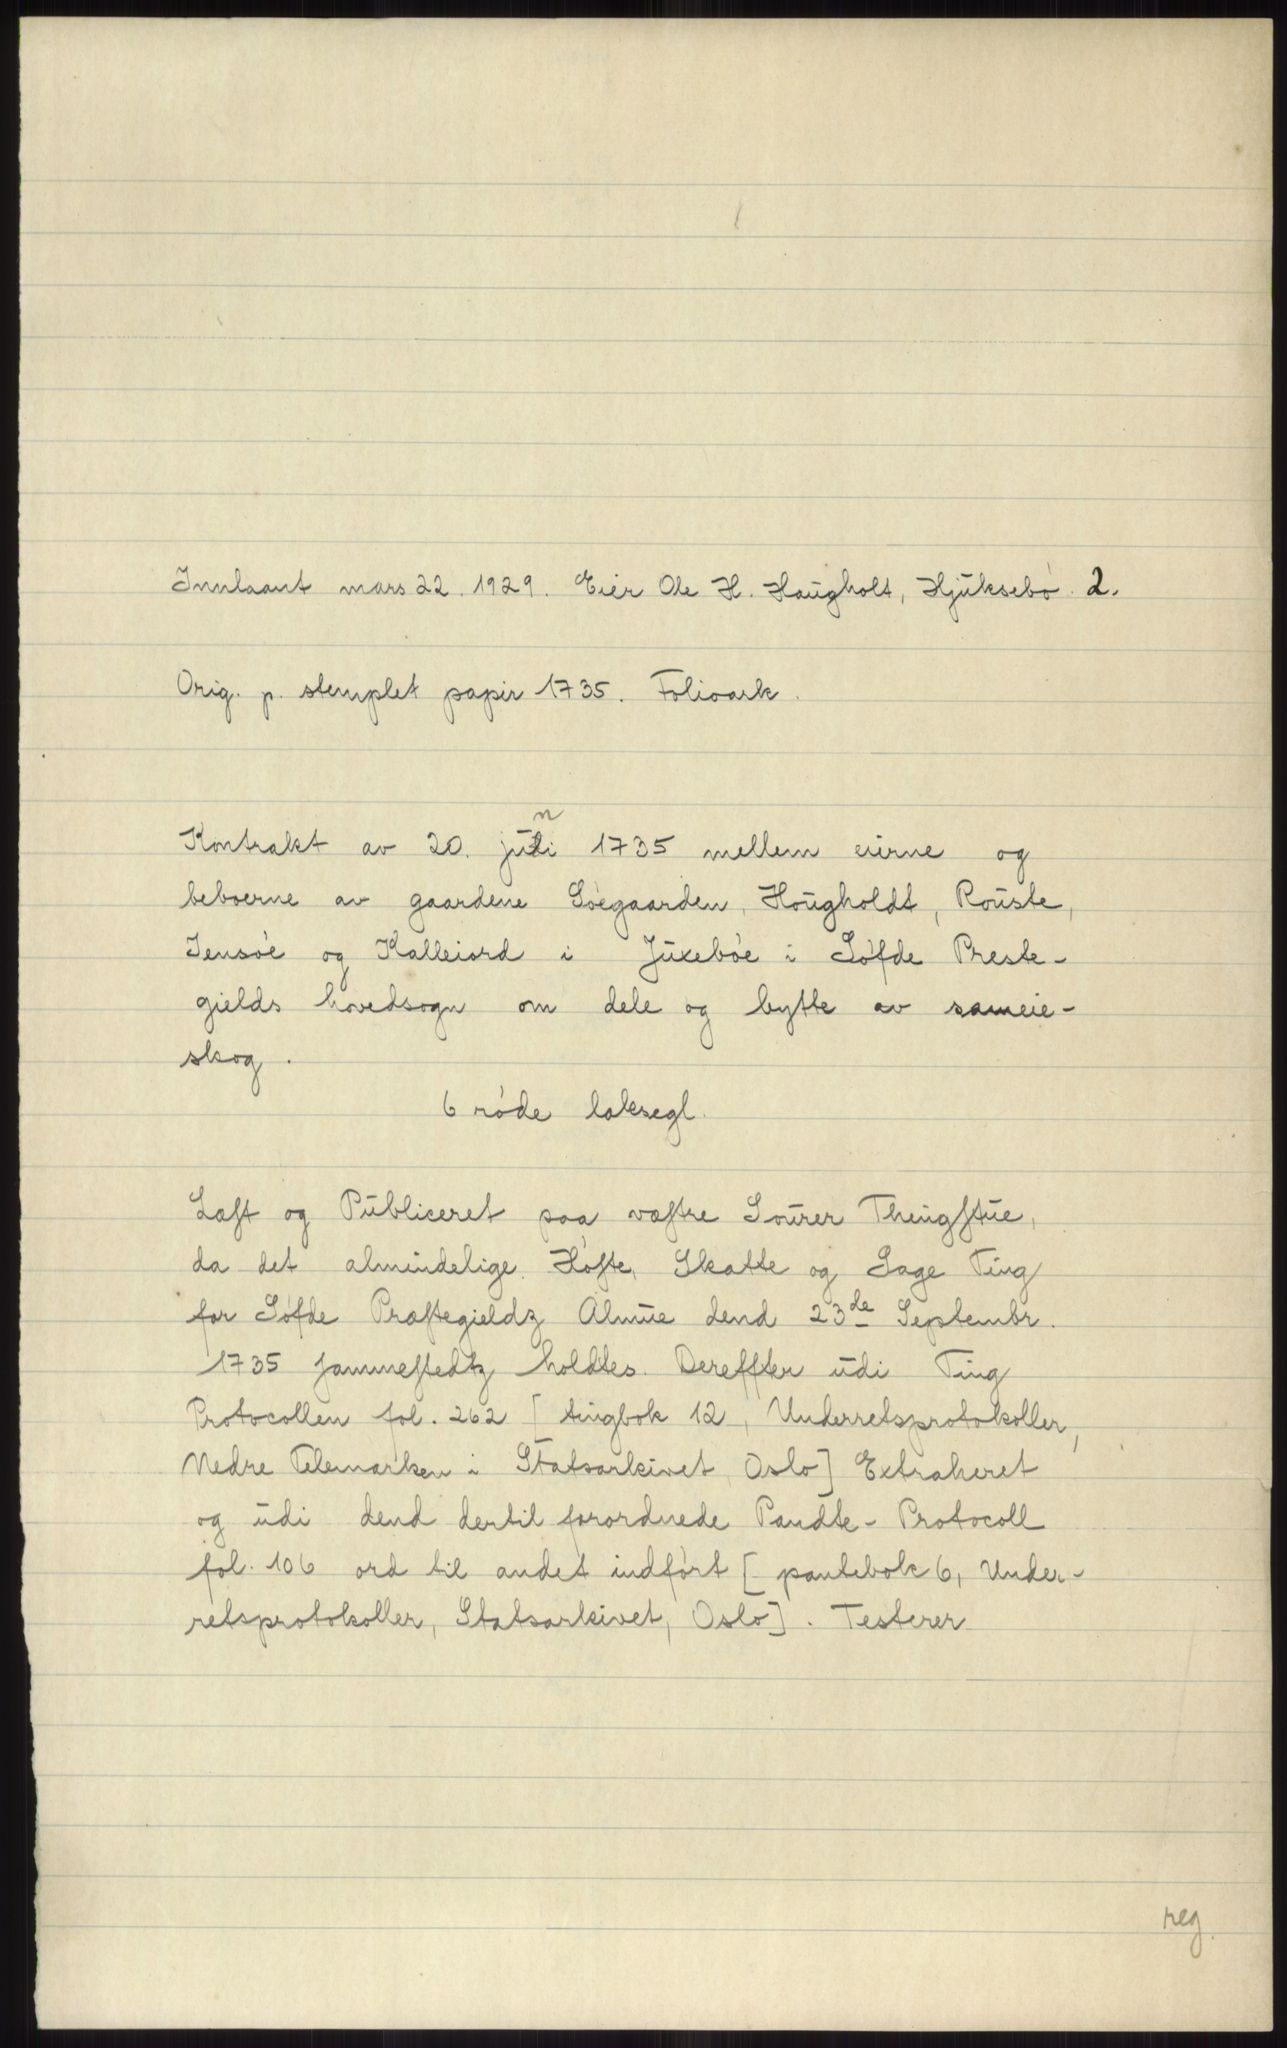 Innlaant mars 22. 1929. Eier Ole H. Haugholt, Hjuksebø. 2.
Orig. p. stemplet papir 1735. Folioark.
n
Kontrakt av 20. juli 1735 mellem eierne og
beboerne av gaardene Søegaarden, Hougholdt, Rouste,
Jensøe og Kalleiord i Juxebøe i Søfde Preste-
gields hovedsogn om dele og bytte av sameie-
skog.
6 røde laksegl.
Læst og Publiceret paa væstre Sourer Thengstue,
da det almindelige Høste, Skatte og Sage Ting
for Søfde Præstegieldz Almue dend 23de Septembr.
1735 sammestedtz holdtes. Dereffter udi Ting
Protocollen fol. 262 [tingbok 12, Underretsprotokoller,
Nedre Telemarken i Statsarkivet, Oslo] Extraheret
og udi dend dertil forordnede Pandte-Protocoll
fol. 106 ord til andet indført [pantebok 6, Under-
retsprotokoller, Statsarkivet, Oslo]. Testerer
reg.